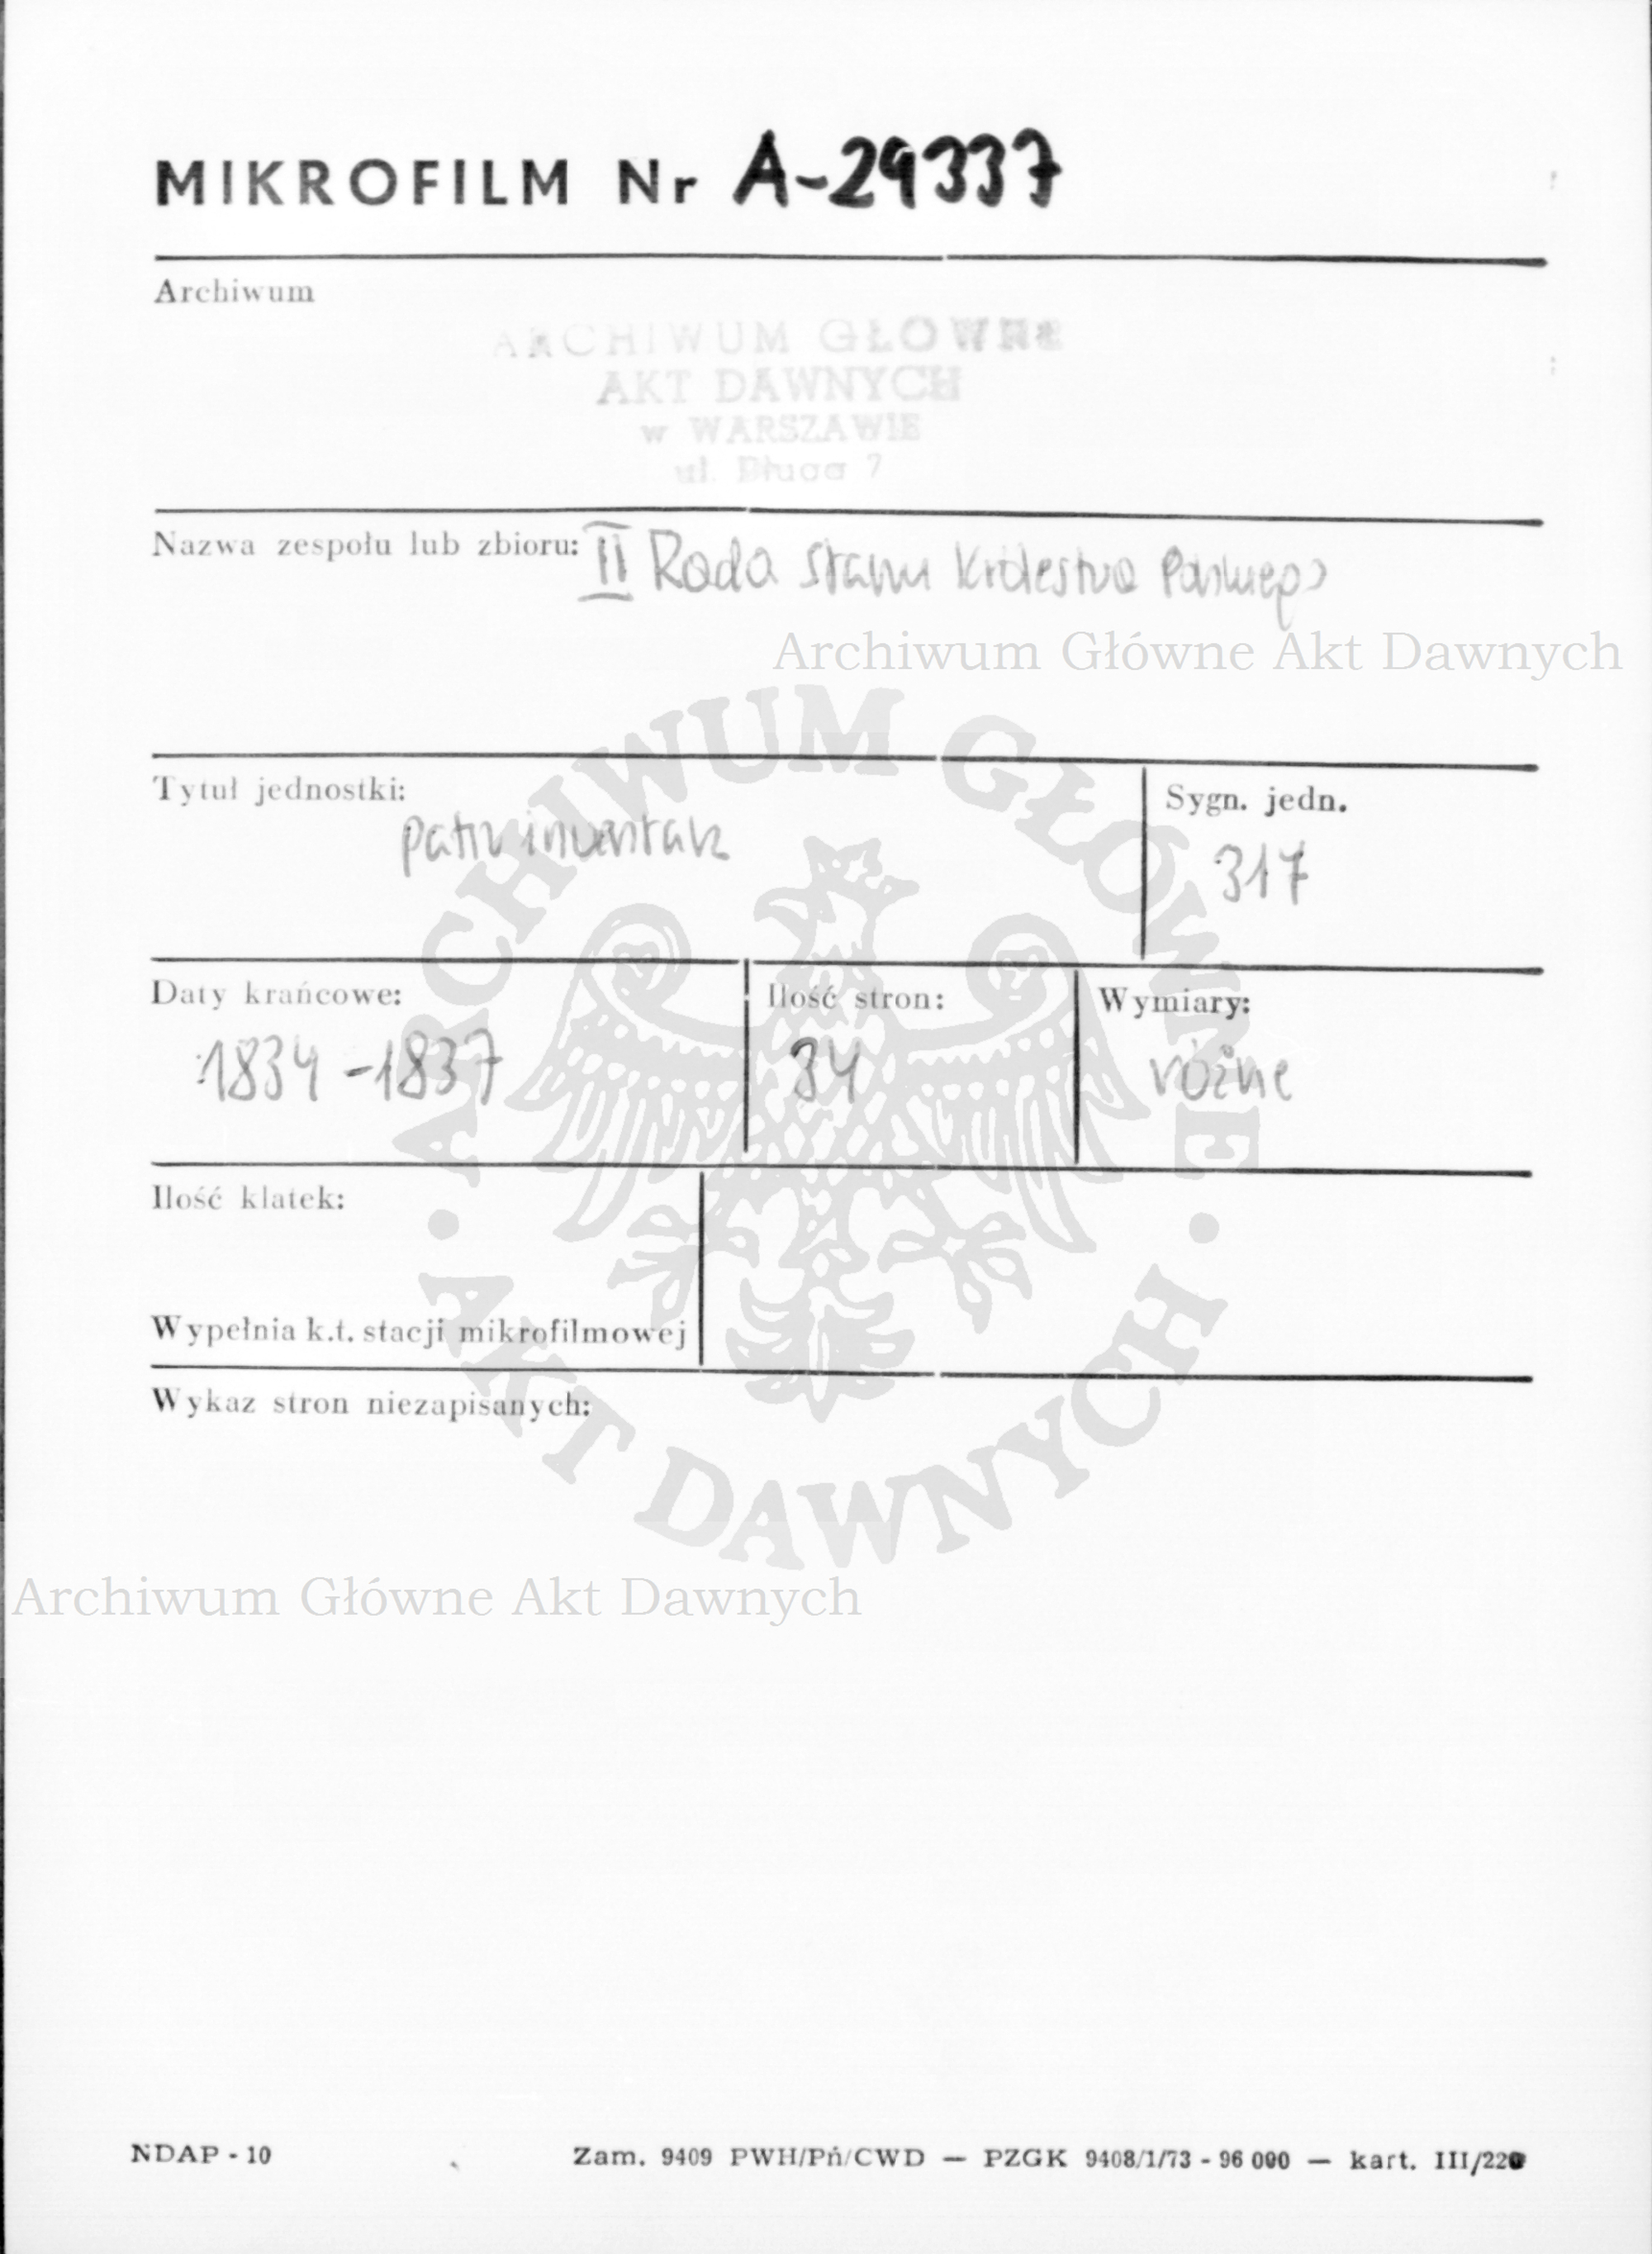 MIKROFILM Nr A-29337
Archiwum
ARCHIWUM GŁÓWNE
AKT DAWNYCH
w WARSZAWIE
ul. Długa 7
Nazwa zespołu lub zbioru: II Rada Stanu Królestwa Polskiego
Archiwum Główne Akt Dawnych
ARCHIWUM GŁÓWNE
Tytuł jednostki:
patrz inwentarz
Sygn. jedn.
317
Daty krańcowe:
1834-1837
Ilość stron:
34
Wymiary:
różne
Ilość klatek:
Wypełnia k.t. stacji mikrofilmowej
Wykaz stron niezapisanych:
· AKT DAWNYCH ·
Archiwum Główne Akt Dawnych
NDAP - 10
Zam. 9409 PWH/Pń/CWD — PZGK 9408/1/73 - 96 000 — kart. III/220